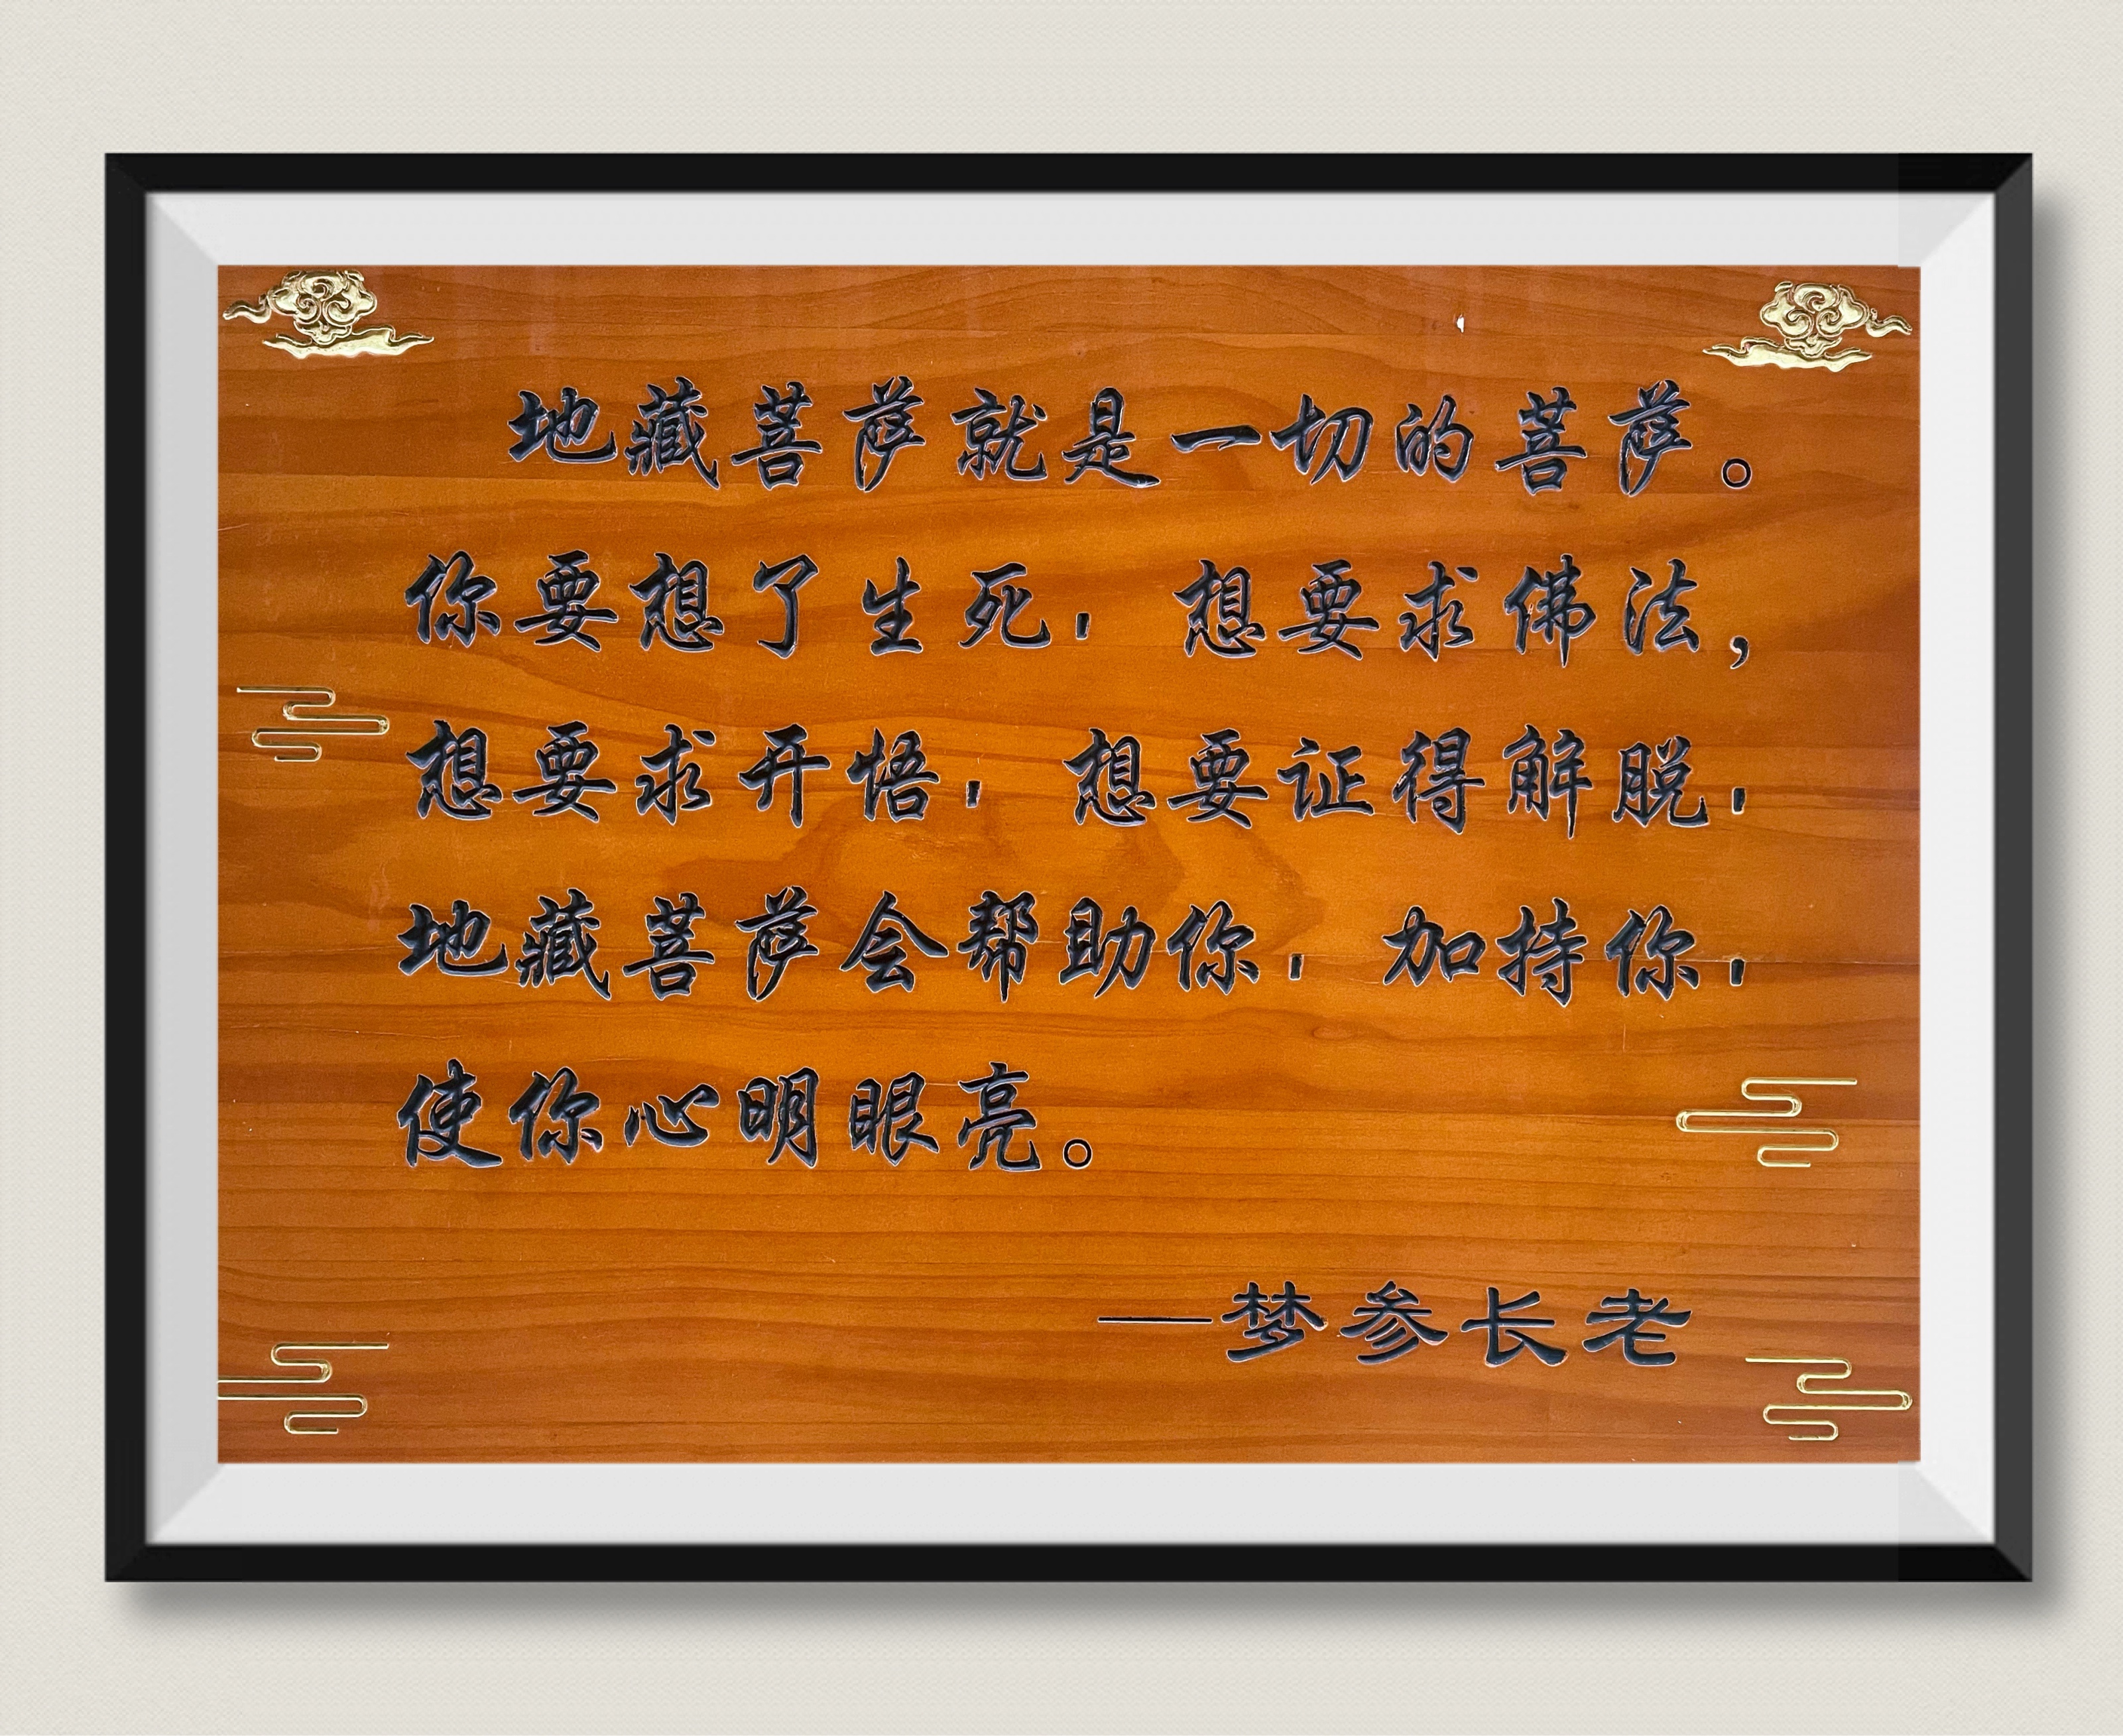 地藏菩萨就是一切的菩萨。
你要想了生死，想要求佛法，
想要求开悟，想要证得解脱，
地藏菩萨会帮助你，加持你，
使你心明眼亮。
—梦参长老